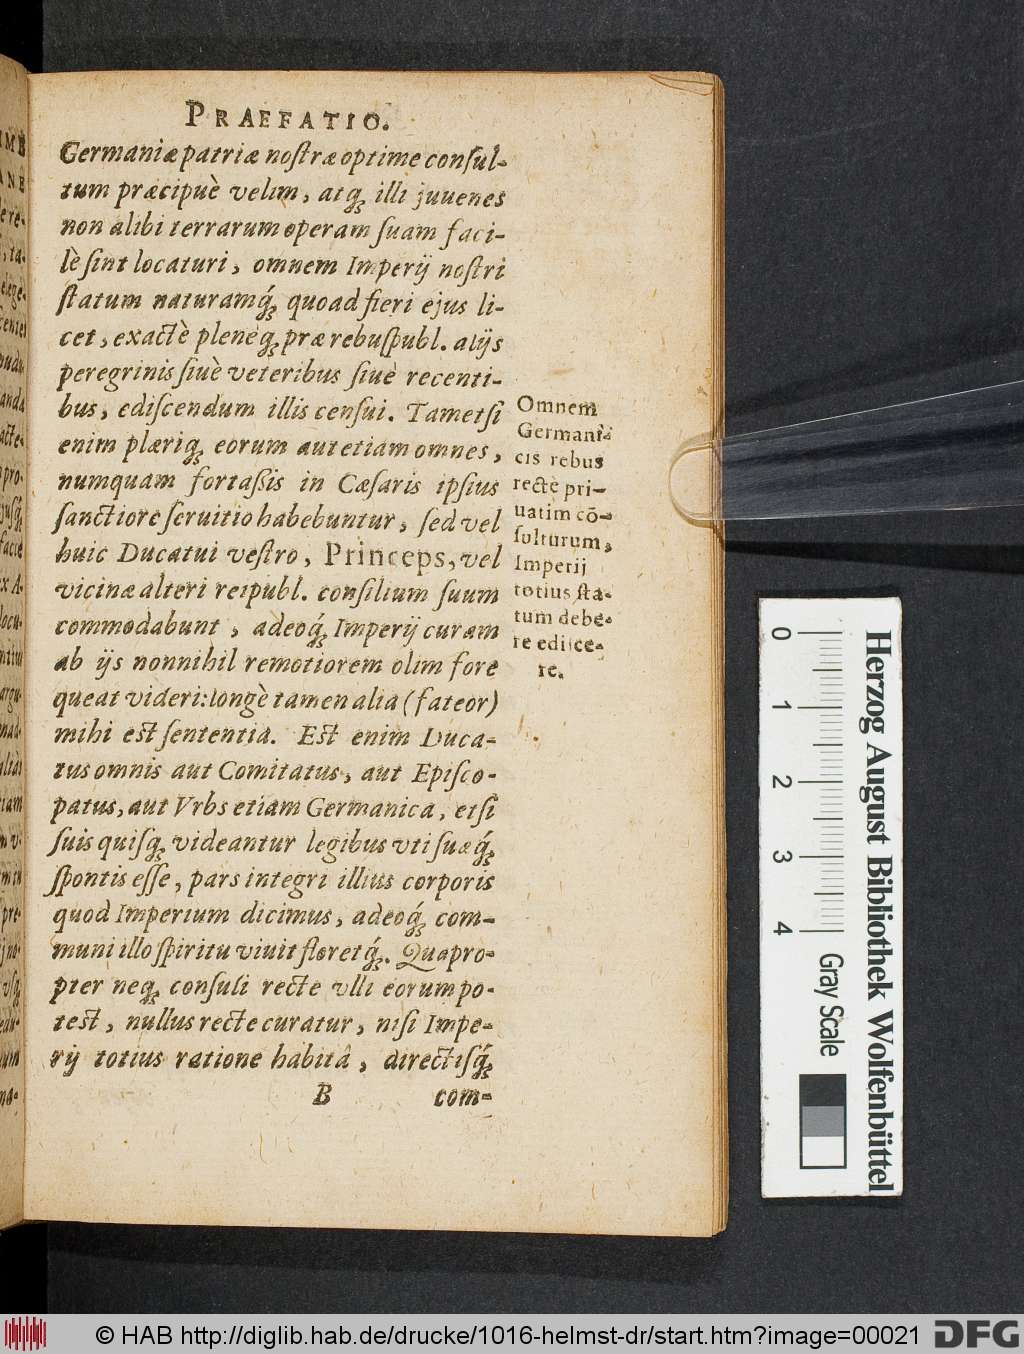 PRAEFATIO.
Germaniæ patriæ noſtræ optime conſul-
tum præcipuè velim, atq́; illi juuenes
non alibi terrarum operam ſuam faci-
lè ſint locaturi, omnem Imperij noſtri
ſtatum naturamq́; quoad fieri ejus li-
cet, exactè pleneq́; præ rebuſpubl. alijs
peregrinis ſiuè veteribus ſiuè recenti-
bus, ediſcendum illis cenſui. Tametſi
enim plæriq; eorum aut etiam omnes,
numquam fortaſſis in Cæſaris ipſius
ſanctiore ſeruitio habebuntur, ſed vel
huic Ducatui veſtro, Princeps, vel
vicinæ alteri reipubl. conſilium ſuum
commodabunt, adeoq́; Imperij curam
ab ijs nonnihil remotiorem olim fore
queat videri: longè tamen alia (fateor)
mihi est ſententia. Est enim Duca-
tus omnis aut Comitatus, aut Epiſco-
patus, aut Vrbs etiam Germanica, etſi
ſuis quiſq; videantur legibus vti ſuæq́;
ſpontis eſſe, pars integri illius corporis
quod Imperium dicimus, adeoq́; com-
muni illo ſpiritu viuit floretq́;. Quapro-
pter neq; conſuli recte vlli eorum po-
test, nullus recte curatur, niſi Impe-
rij totius ratione habitâ, directiſq́;
B com-
Omnem
Germani-
cis rebus
rectè pri-
uatim cō-
ſulturum,
Imperij
totius ſta-
tum debe-
re ediſce-
re.
0 1 2 3 4
Gray Scale
Herzog August Bibliothek Wolfenbüttel
© HAB http://diglib.hab.de/drucke/1016-helmst-dr/start.htm?image=00021
DFG